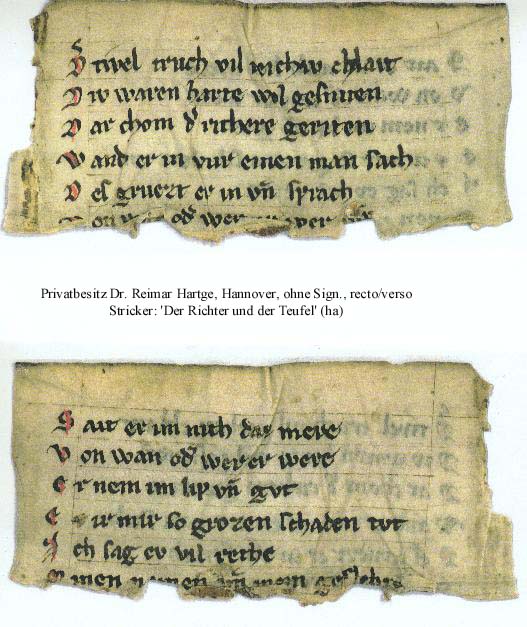 D tivel truch vil richiv chlait
D iv waren harte wol gesniten
D ar chom d' richtere geriten
W and er in vur einen man sach
D es gruezt er in vn̄ sprach
od' wer
Privatbesitz Dr. Reimar Hartge, Hannover, ohne Sign., recto/verso
Stricker: 'Der Richter und der Teufel' (ha)
S ait er im niht daz mere
V on wan od' wer er were
E r nem im lip vn̄ gvt
E ir mir so grozen schaden tvt
I ch sag ev vil rehte
namen vn̄ mein geslehte